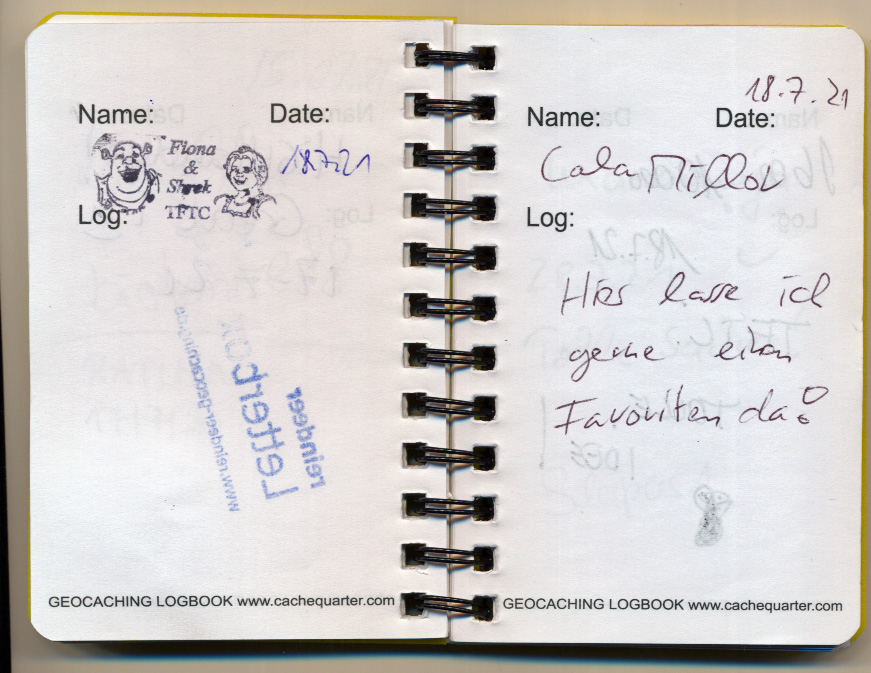 Name:
Date:
Fiona
&
Shrek
TFTC
18.7.21
Log:
Letterbox
reindeer
www.reindeer-geocaching.de
GEOCACHING LOGBOOK www.cachequarter.com
18.7.21
Name:
Date:
Cala Millor
Log:
18.7.21
Hier lasse ich
gerne einen
Favoriten da!
GEOCACHING LOGBOOK www.cachequarter.com